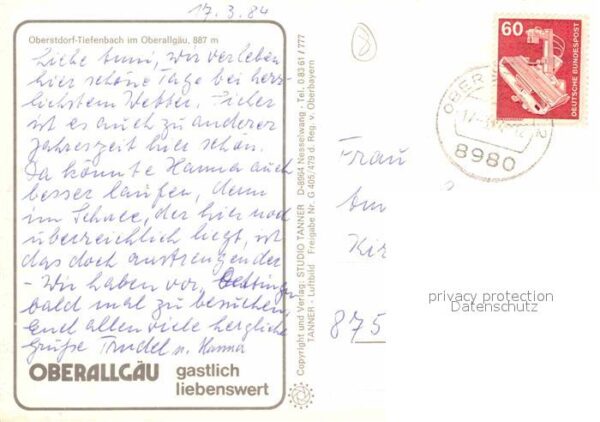 17.3.84
Oberstdorf-Tiefenbach im Oberallgäu, 887 m
Liebe Anni, wir verleben
hier schöne Tage bei herz-
lichstem Wetter. Sicher
ist es auch zu anderer
Jahreszeit hier schön.
Da könnte Hanna auch
besser laufen, denn
im Schnee, der hier noch
überreichlich liegt, ist
das doch anstrengender
- Wir haben vor,
bald mal zu besuchen,
und allen viele herzliche
Grüße Trudel u. Hanna
OBERALLGÄU gastlich
liebenswert
Copyright und Verlag: STUDIO TANNER D-8964 Nesselwang - Tel. 0 83 61 / 777
TANNER - Luftbild Freigabe Nr. G 405/479 d. Reg. v. Oberbayern
60
DEUTSCHE BUNDESPOST
8980
Frau
Kir
875
privacy protection
Datenschutz